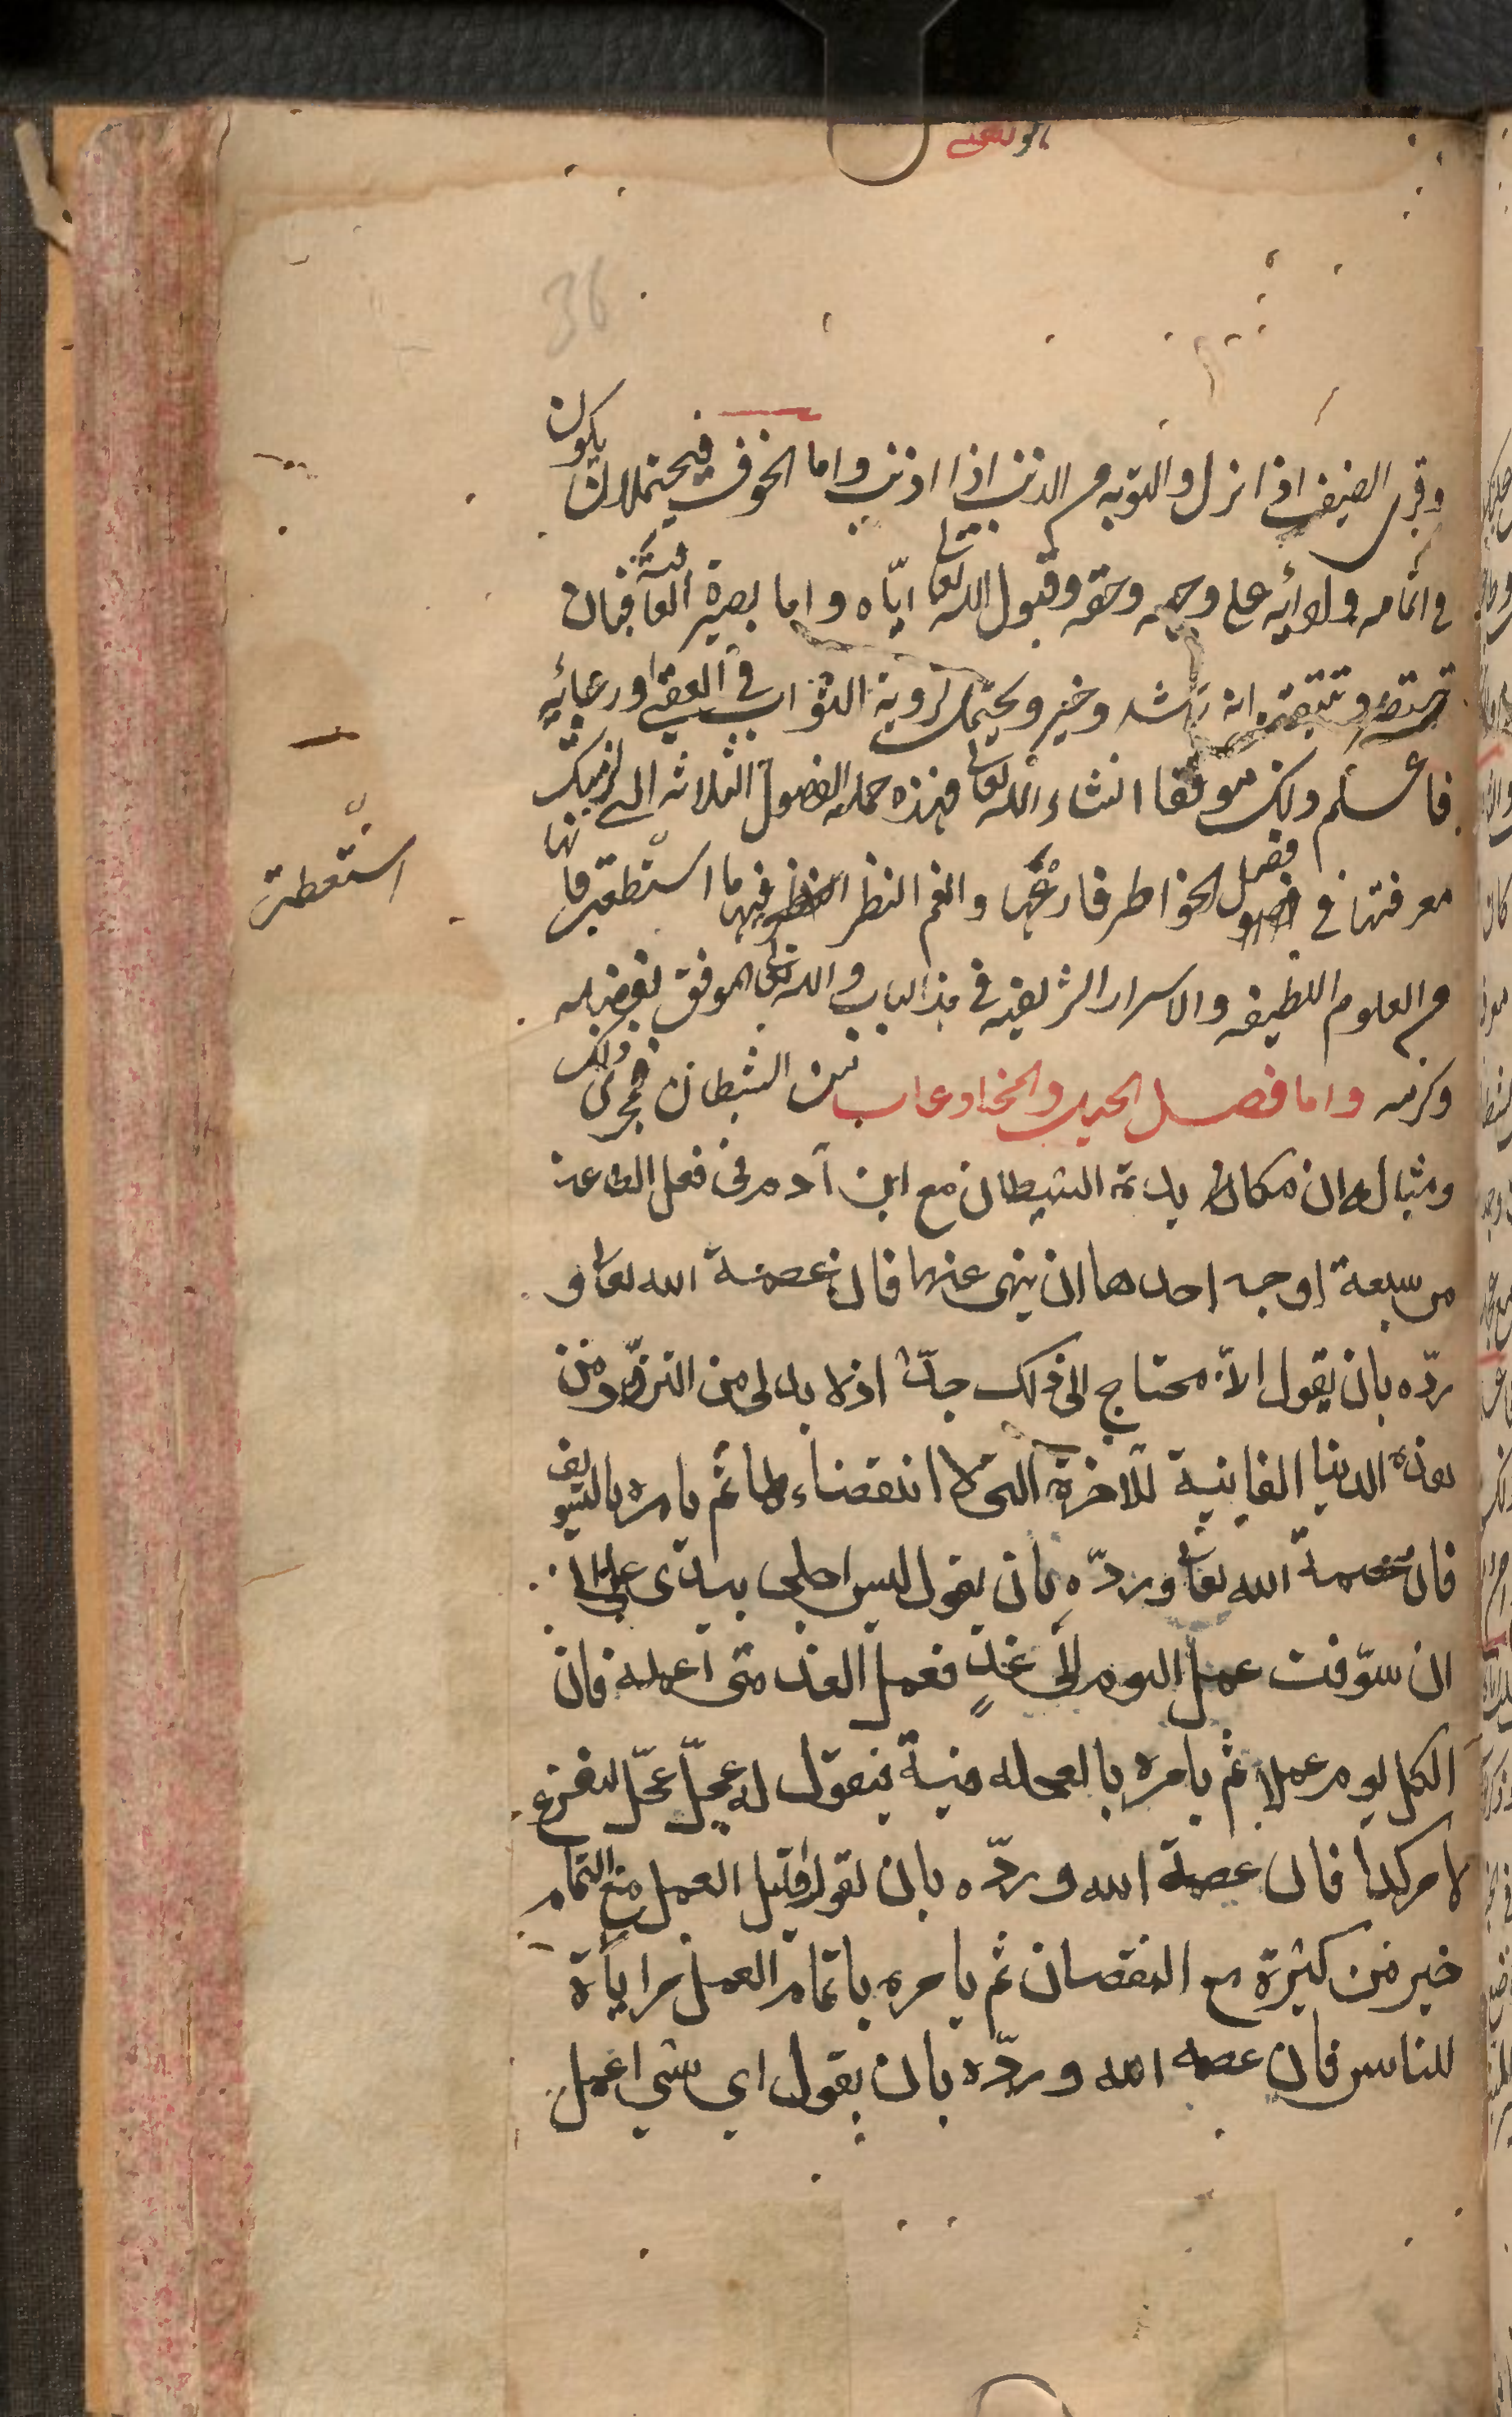 36
وقرى الضيف اذا نزل والتوبه من الذنب اذا اذنب واما الخوف فيحتمل ان يكون
في اتمامه ولادائه على وجهه وحقه وقبول الله تعالى اياه واما بصيرة العاقبة فبان
انه رشد وخير ويحتمل لرؤية الثواب في العقبى او رجائه
فاعلم ولك موفقا انشاء الله تعالى فهذه جملة الفصول الثلاثه التي لزمتك
معرفتها في فصل الخواطر فارعها وانعم النظر فيها ما استطعت فانها
من العلوم اللطيفه والاسرار الشريفه في هذا الباب والله تعالى الموفق بفضله
وكرمه واما فصل الحيل والمخادعات من الشيطان فمجرى ذلك
ومثاله ان مكايدة الشيطان مع ابن آدم في فعل الطاعة
من سبعة اوجه احدها ان ينهى عنها فان عصمة الله تعالى و
ردّه بان يقول الآ محتاج الى ذلك جدّا اذ لا بد لى من التزوّد من
هذه الدنيا الفانية للآخرة التى لا انقضاء لها ثم يامره بالتسويف
فان عصمة الله تعالى وردّه بان يقول ليس اجلى بيدى على
ان سوّفت عمل اليوم الى غدٍ فعمل الغد متى اعمله فان
لكل يوم عملا ثم يامره بالعجله فيقول له عجّل عجّل لتفرغ
لامر كذا فان عصمة الله وردّه بان يقول قليل العمل مع التمام
خير من كثيرة مع النقصان ثم يامره باتمام العمل مراياة
للناس فان عصمه الله وردّه بان يقول اى شى اعمل
استطعت